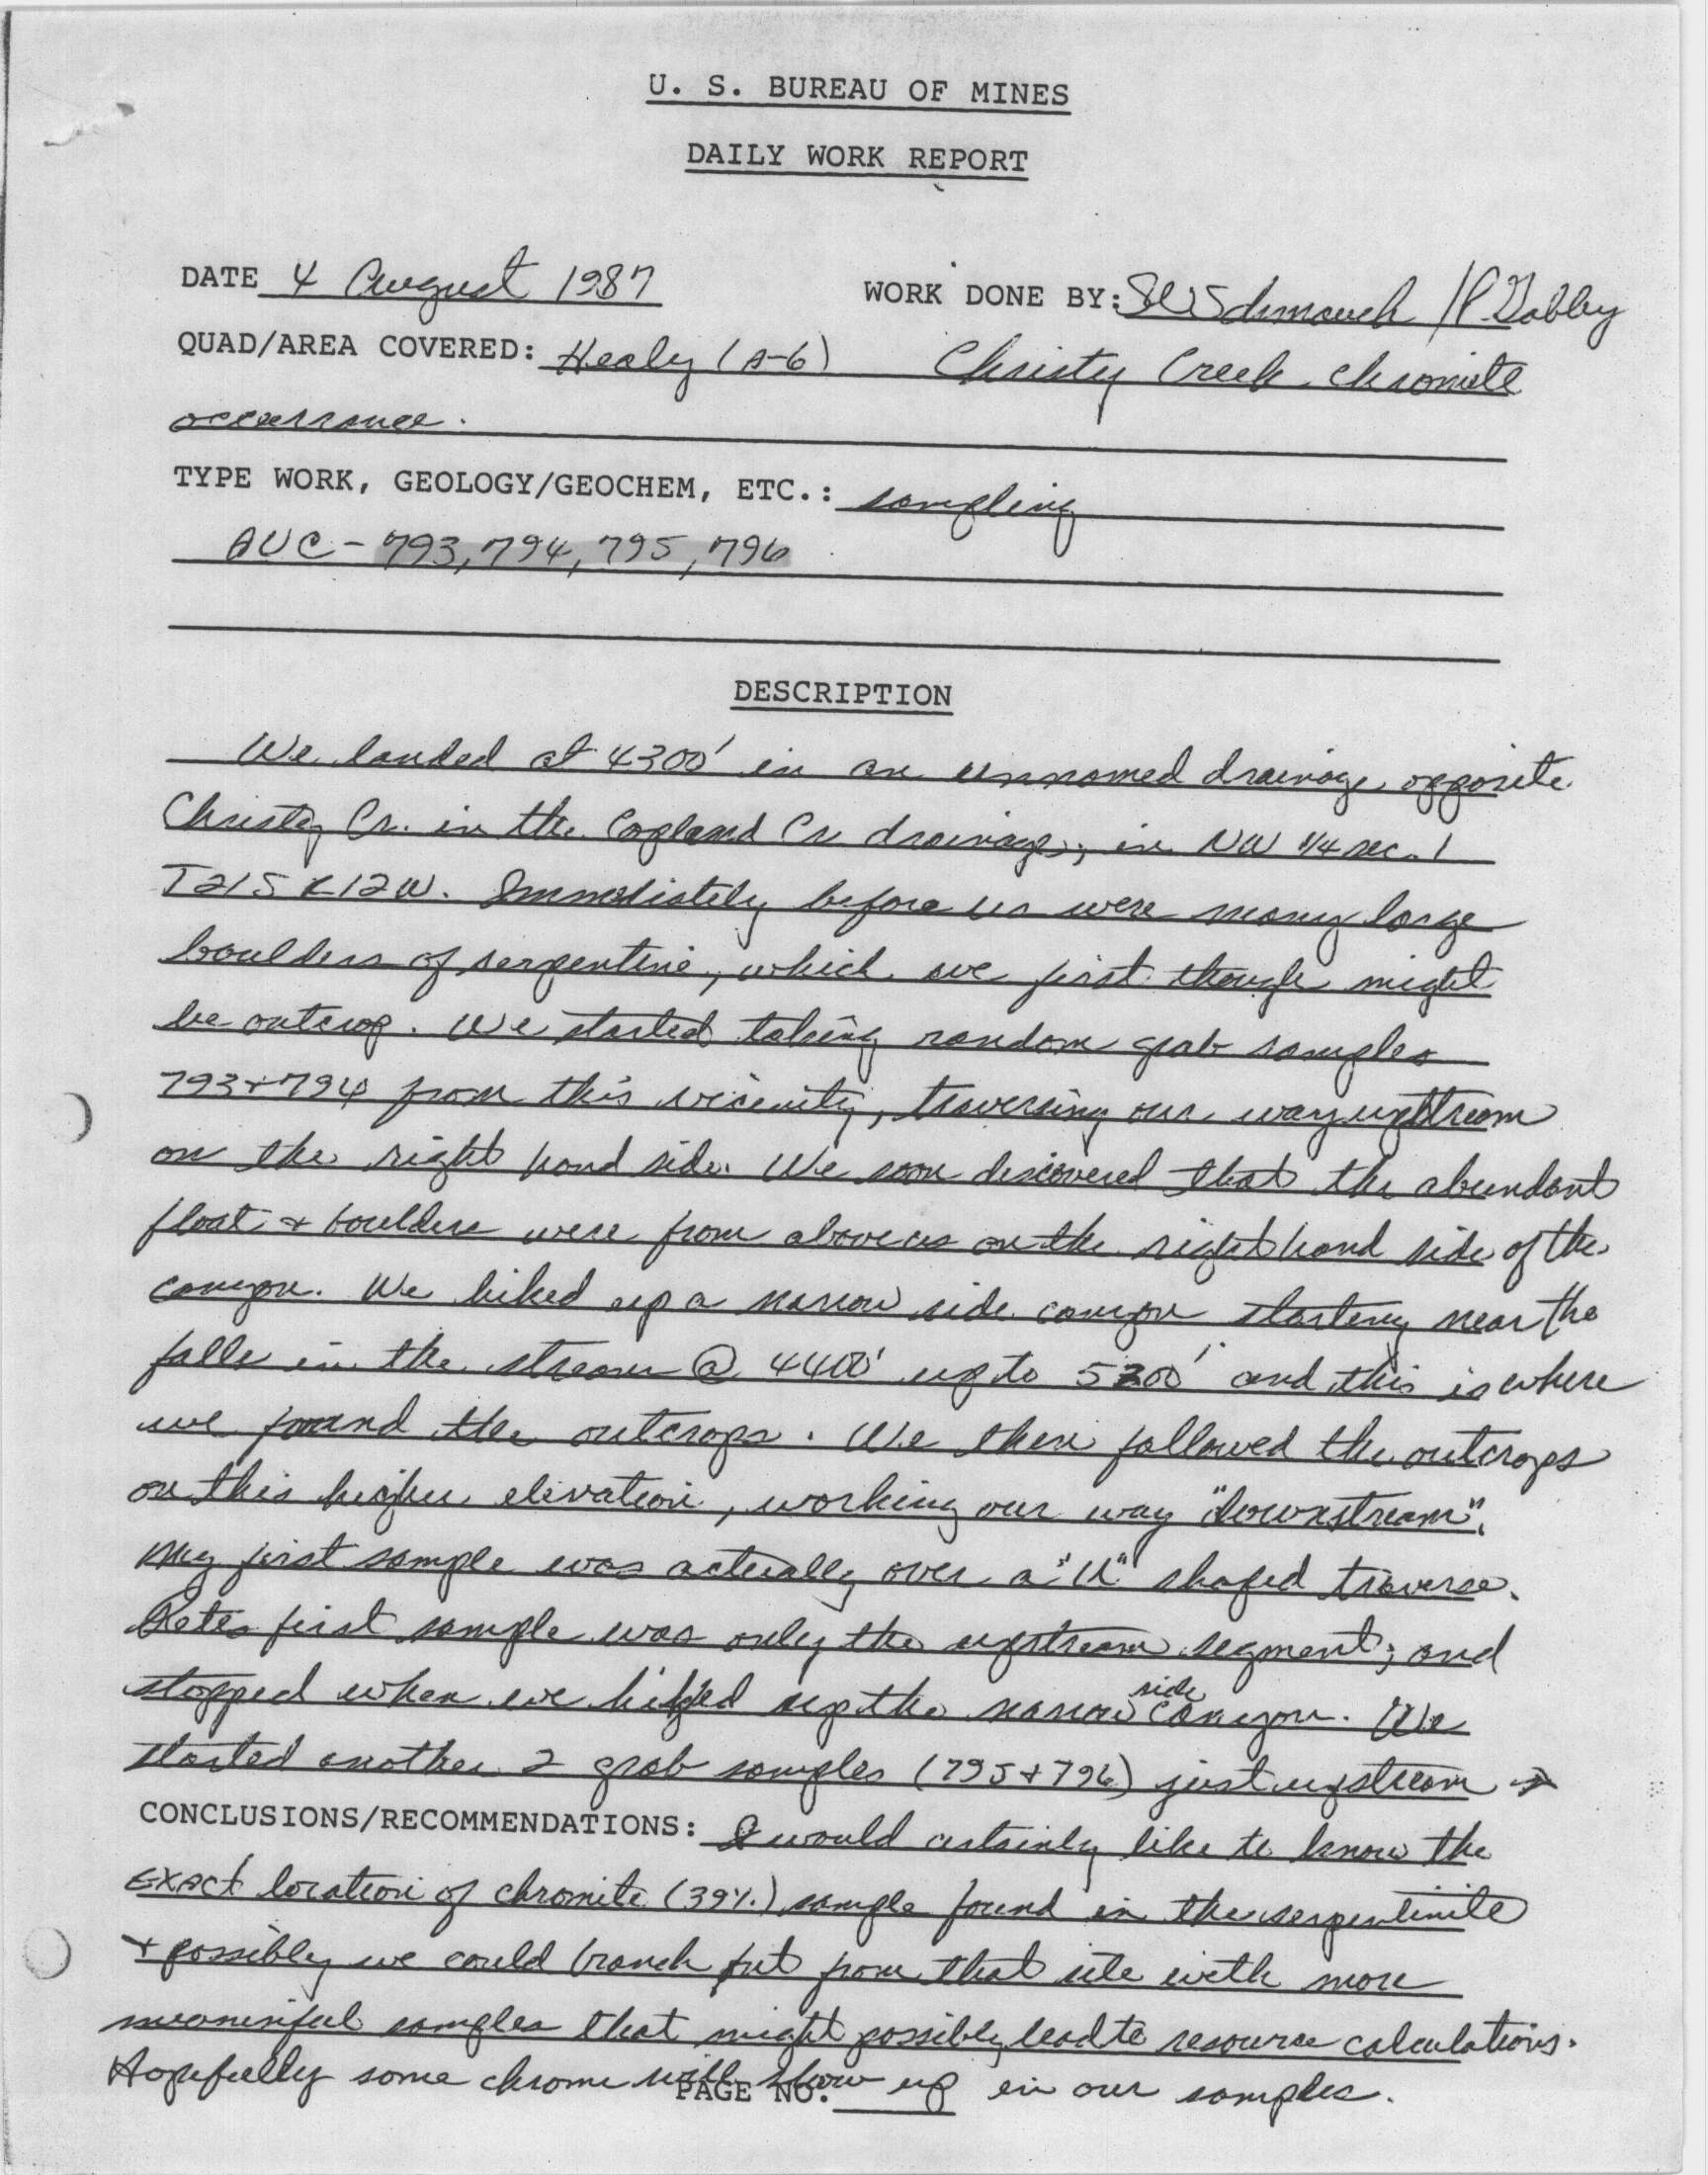 U. S. BUREAU OF MINES
DAILY WORK REPORT
DATE 4 August 1987 WORK DONE BY: SW Schmauch / P Gabby
QUAD/AREA COVERED: Healy (A-6) Christy Creek chromite
occurrance.
TYPE WORK, GEOLOGY/GEOCHEM, ETC.: sampling
AUC - 793, 794, 795, 796
DESCRIPTION
We landed at 4300' in an unnamed drainage opposite
Christy Cr. in the Copeland Cr drainage; in NW 1/4 sec. 1
T21S R12W. Immediately before us were many large
boulders of serpentine, which we first though might
be outcrop. We started taking random grab samples
793 + 794 from this vicinity, traversing our way upstream
on the right hand side. We soon discovered that the abundant
float + boulders were from above us on the right hand side of the
canyon. We hiked up a narrow side canyon starting near the
falls in the stream @ 4400' up to 5200' and this is where
we found the outcrops. We then followed the outcrops
on this higher elevation, working our way "downstream".
My first sample was actually over a "U" shaped traverse.
Petes first sample was only the upstream segment; and
stopped when we hiked up the narrow side canyon. We
started another 2 grab samples (795 + 796) just upstream →
CONCLUSIONS/RECOMMENDATIONS: I would certainly like to know the
EXACT location of chromite (39%) sample found in the serpentinite
+ possibly we could branch out from that site with more
meaningful samples that might possibly lead to resource calculations.
Hopefully some chrome will show up in our samples.
PAGE NO.